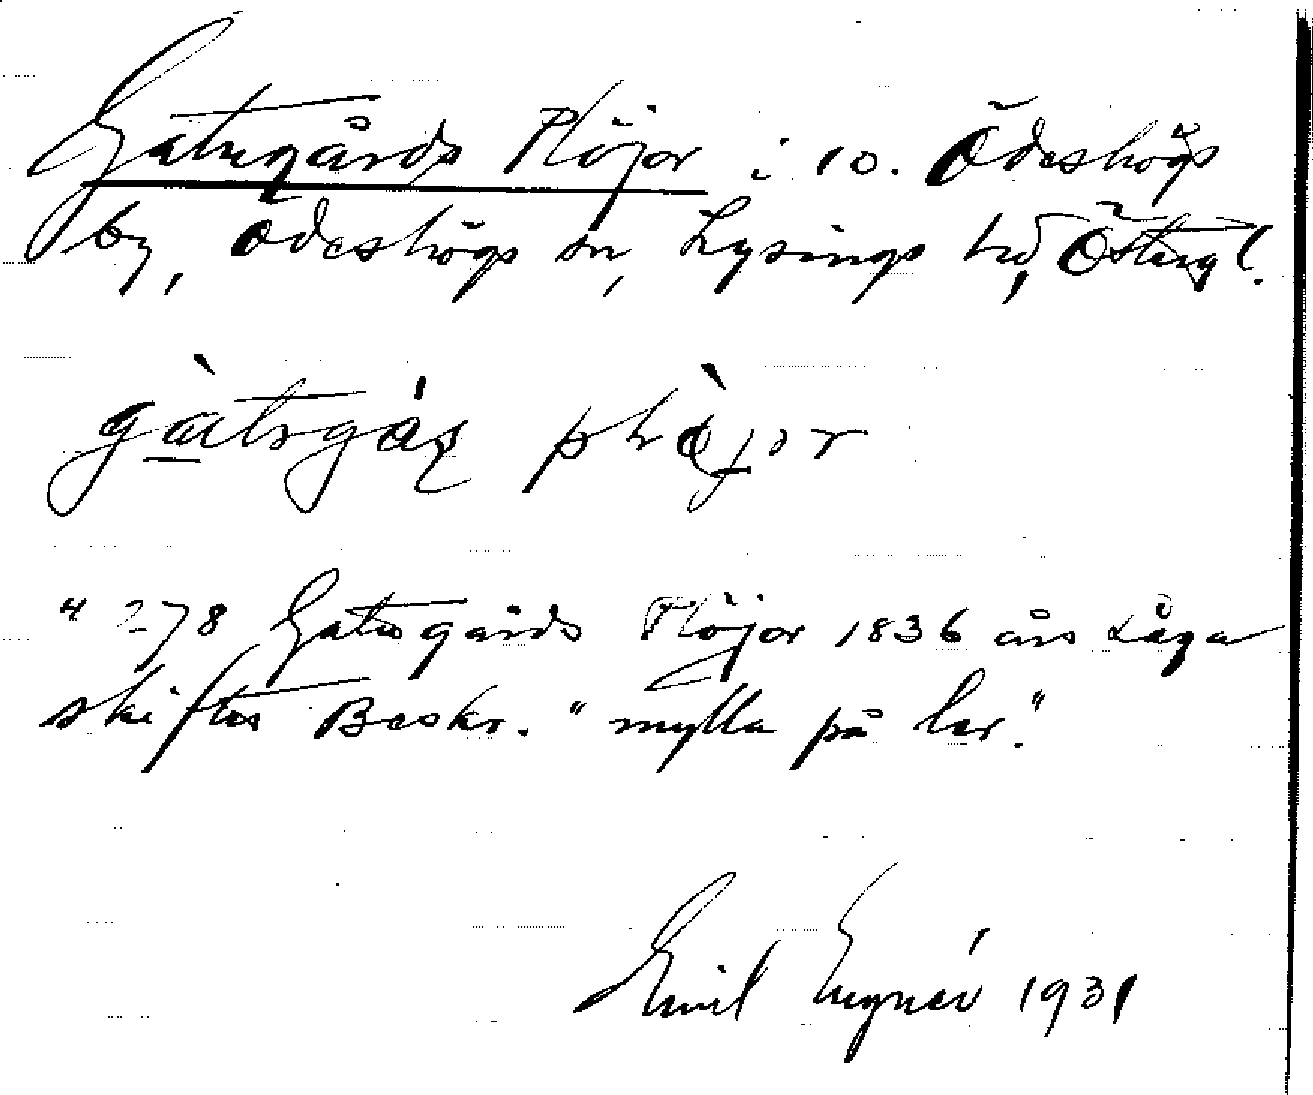 Gatugårds Plöjor i 10. Ödeshögs
by, Ödeshögs sn, Lysings hd, Östergl.
gàtsgáş phòjor
" 278 Gatugårds Plöjor 1836 års Laga
skiftes Beskr. " mylla på ler."
Emil 1931